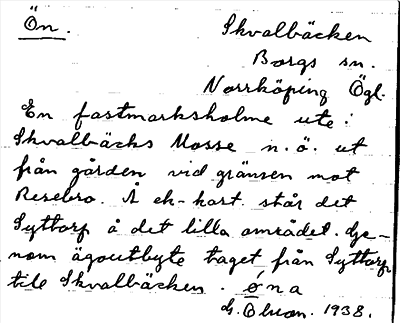 Ön.
Skvalbäcken
Borgs sn.
Norrköping Ögl.
En fastmarksholme ute i
Skvalbäcks Mosse n.ö. ut
från gården vid gränsen mot
Resebro. Å ek-kart. står det
Syttorp å det lilla området. Ge-
nom ägoutbyte taget från Syttorp
till Skvalbäcken. øna
G. Olson. 1938.